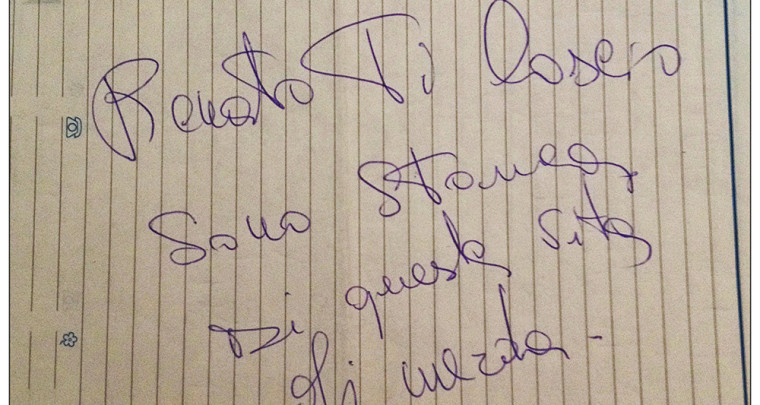 Renato Ti lascio
Sono stanca
Di questa sita
di merda.